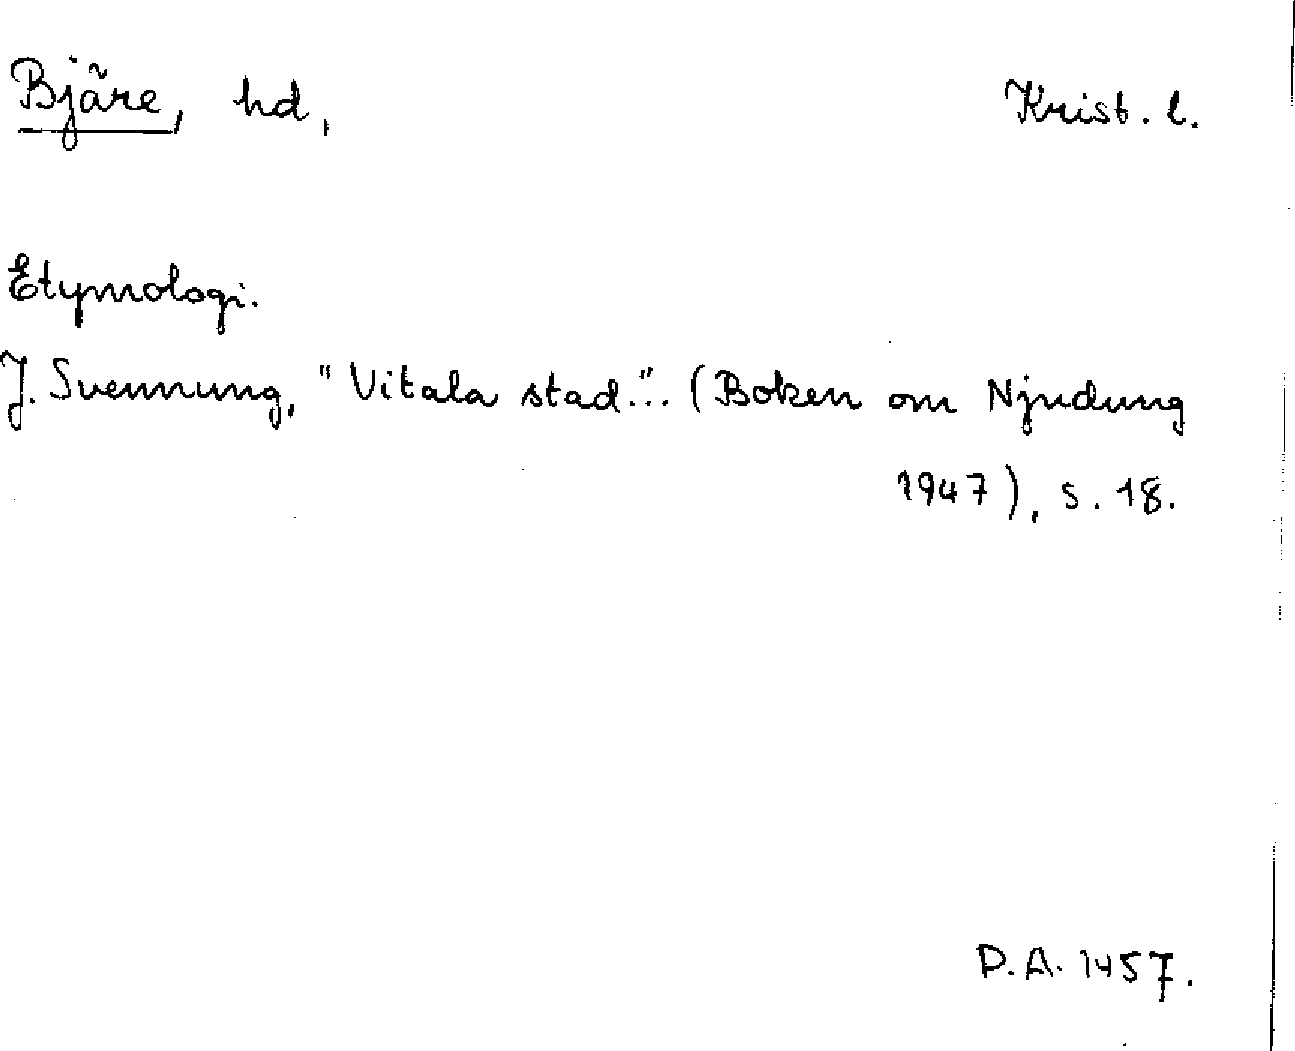 Bjäre, hd, Krist. l.
Etymologi.
J. Svennung, "Vitala stad"... (Boken om Njudung
1947), s. 18.
D.A. 1457.